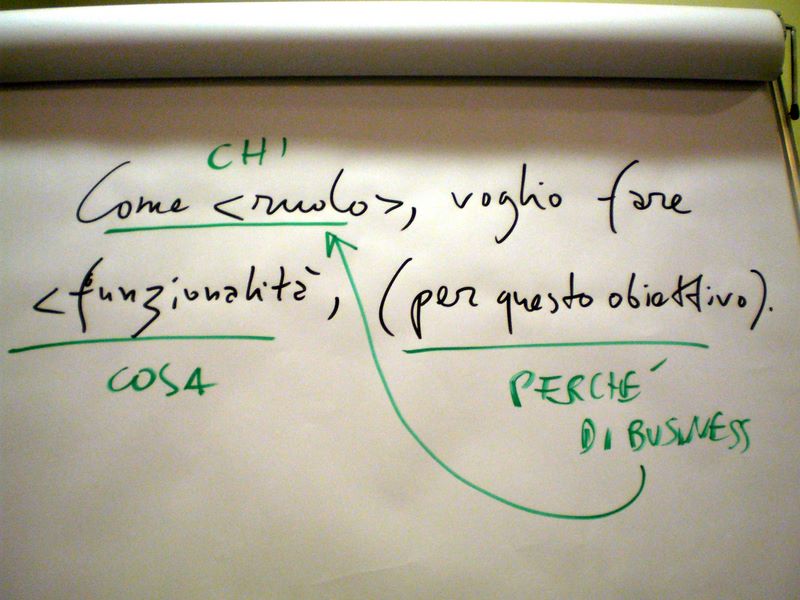 CHI
Come <ruolo>, voglio fare
<funzionalità, (per questo obiettivo).
COSA
PERCHÉ
DI BUSINESS